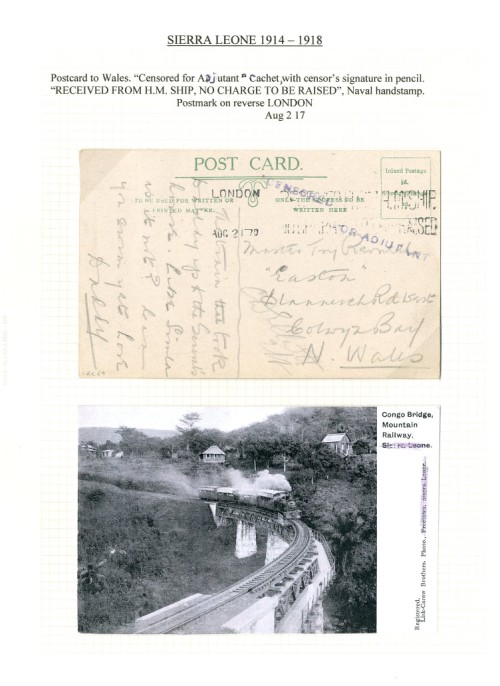 SIERRA LEONE 1914 – 1918
Postcard to Wales. "Censored for Adjutant" Cachet, with censor's signature in pencil.
"RECEIVED FROM H.M. SHIP, NO CHARGE TO BE RAISED", Naval handstamp.
Postmark on reverse LONDON
Aug 2 17
POST CARD.
Inland Postage
LONDON
CENSORED
TO BE USED FOR WRITTEN OR
PRINTED MATTER.
ONLY THE ADDRESS TO BE
WRITTEN HERE
AUG 2
FOR ADJUTANT
RAISED
Master
"Easton"
Colwyn Bay
N. Wales
train that took
up to the
was it not?
you
love
Daddy
Congo Bridge,
Mountain
Railway,
Sierra Leone.
Registered.
Lisk-Carew Brothers, Photo., Freetown, Sierra Leone.